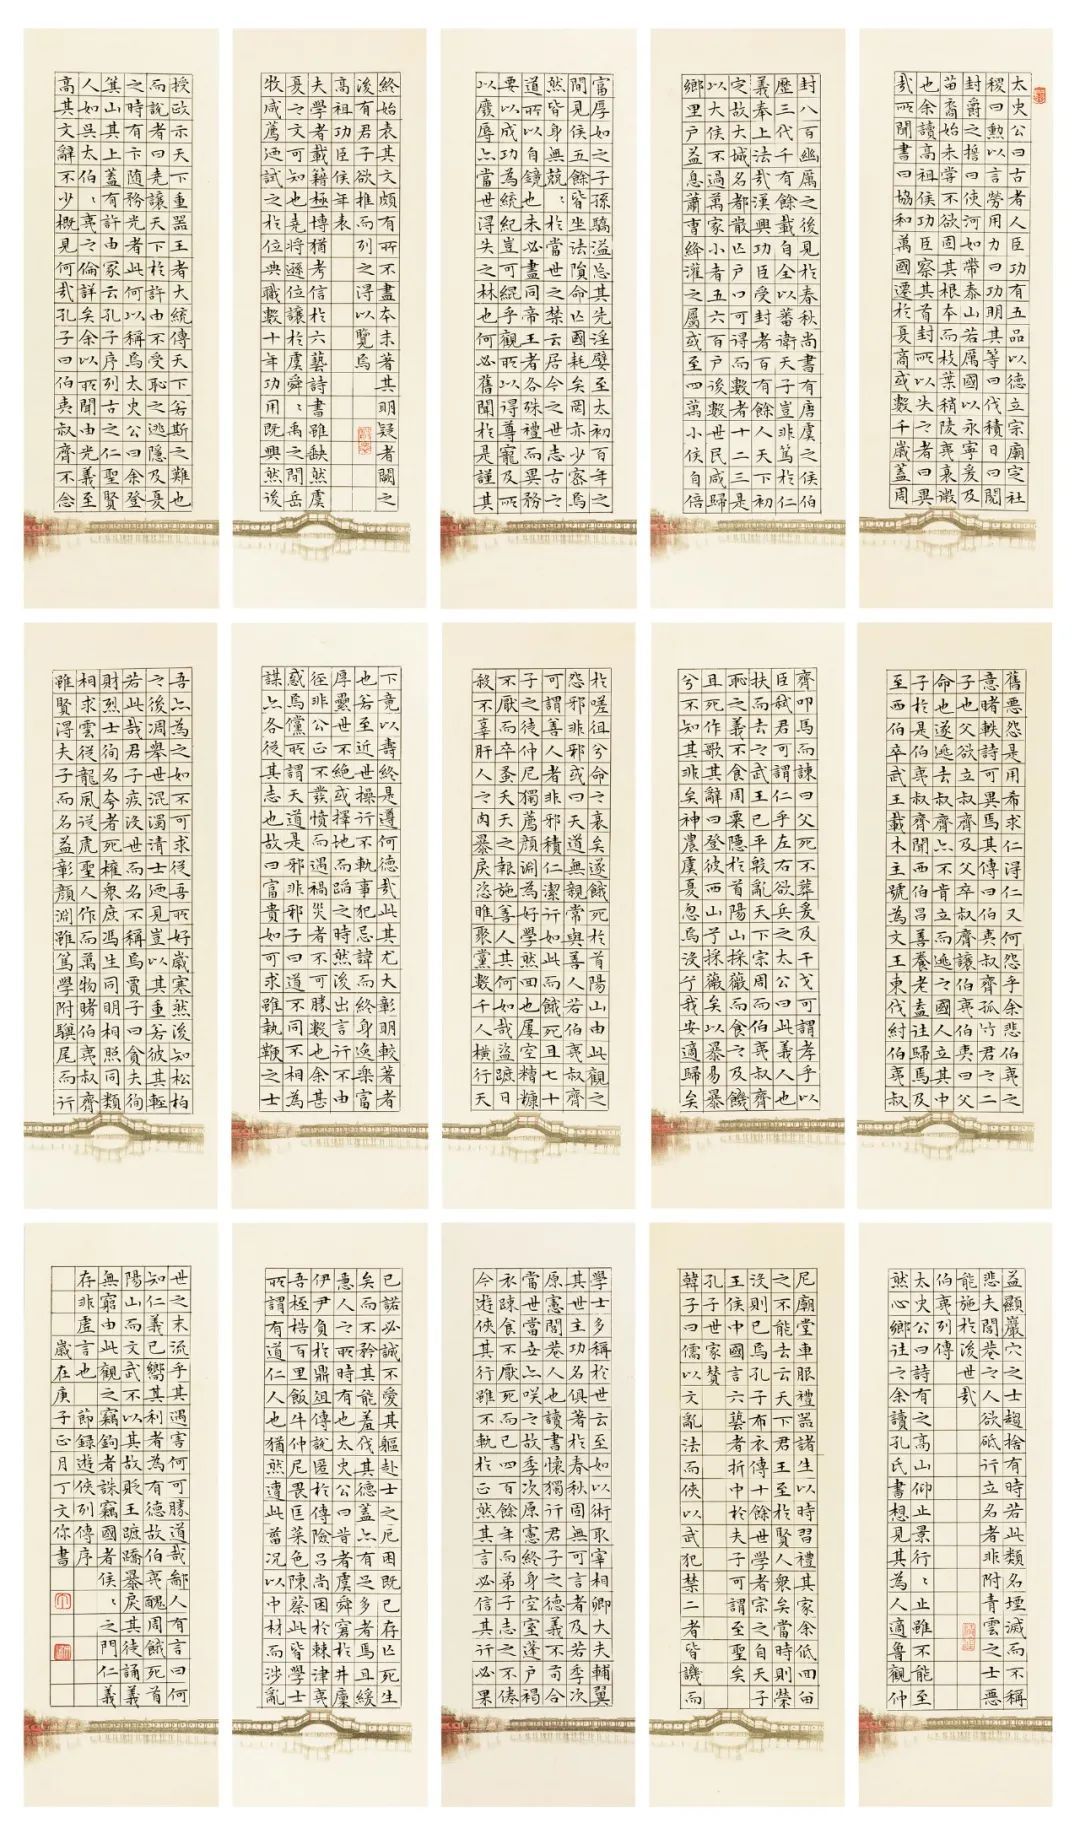 太史公曰古者人臣功有五品以德立宗廟定社
稷曰勳以言勞用力曰功明其等曰伐積日曰閱
封爵之誓曰使河如帶泰山若厲國以永寧爰及
苗裔始未嘗不欲固其根本而枝葉稍陵夷衰微
也余讀高祖侯功臣察其首封所以失之者曰異
哉所聞書曰協和萬國遷於夏商或數千歲蓋周
封八百幽厲之後見於春秋尚書有唐虞之侯伯
歷三代千有餘載自全以蕃衛天子豈非篤於仁
義奉上法哉漢興功臣受封者百有餘人天下初
定故大城名都散亡戶口可得而數者十二三是
以大侯不過萬家小者五六百戶後數世民咸歸
鄉里戶益息蕭曹絳灌之屬或至四萬小侯自倍
富厚如之子孫驕溢忘其先淫嬖至太初百年之
間見侯五餘皆坐法隕命亡國耗矣罔亦少密焉
然皆身無兢、於當世之禁居今之世志古之
道所以自鏡也未必盡同帝王者各殊禮而異務
要以成功為統紀豈可緄乎觀所以得尊寵及所
以廢辱亦當世得失之林也何必舊聞於是謹其
終始表其文頗有所不盡本末著其明疑者闕之
後有君子欲推而列之得以覽焉
高祖功臣侯年表
夫學者載籍極博猶考信於六藝詩書雖缺然虞
夏之文可知也堯將遜位讓於虞舜、禹之間岳
牧咸薦迺試之於位典職數十年功用既興然後
授政示天下重器王者大統傳天下若斯之難也
而說者曰堯讓天下於許由不受恥之逃隱及夏
之時有卞隨務光者此何以稱焉太史公曰余登
箕山其上蓋有許由冢云孔子序列古之仁聖賢
人如吳太伯、夷之倫詳矣余以所聞由光義至
高其文辭不少概見何哉孔子曰伯夷叔齊不念
舊惡怨是用希求仁得仁又何怨乎余悲伯夷之
意睹軼詩可異焉其傳曰伯夷叔齊孤竹君之二
子也父欲立叔齊及父卒叔齊讓伯夷伯夷曰父
命也遂逃去叔齊亦不肯立而逃之國人立其中
子於是伯夷叔齊聞西伯昌善養老盍往歸焉及
至西伯卒武王載木主號為文王東伐紂伯夷叔
齊叩馬而諫曰父死不葬爰及干戈可謂孝乎以
臣弒君可謂仁乎左右欲兵之太公曰此義人也
扶而去之武王已平殷亂天下宗周而伯夷叔齊
恥之義不食周粟隱於首陽山採薇而食之及饑
且死作歌其辭曰登彼西山兮採薇矣以暴易暴
兮不知其非矣神農虞夏忽焉沒兮我安適歸矣
於嗟徂兮命之衰矣遂餓死於首陽山由此觀之
怨邪非邪或曰天道無親常與善人若伯夷叔齊
可謂善人者非邪積仁潔行如此而餓死且七十
子之徒仲尼獨薦顏淵為好學然回也屢空糟糠
不厭而卒蚤夭天之報施善人其何如哉盜蹠日
殺不辜肝人之肉暴戾恣睢聚黨數千人橫行天
下竟以壽終是遵何德哉此其尤大彰明較著者
也若至近世操行不軌事犯忌諱而終身逸樂富
厚纍世不絕或擇地而蹈之時然後出言行不由
徑非公正不發憤而遇禍災者不可勝數也余甚
惑焉儻所謂天道是邪非邪子曰道不同不相為
謀亦各從其志也故曰富貴如可求雖執鞭之士
吾亦為之如不可求從吾所好歲寒然後知松柏
之後凋舉世混濁清士迺見豈以其重若彼其輕
若此哉君子疾沒世而名不稱焉賈子曰貪夫徇
財烈士徇名夸者死權衆庶馮生同明相照同類
相求雲從龍風從虎聖人作而萬物睹伯夷叔齊
雖賢得夫子而名益彰顏淵雖篤學附驥尾而行
益顯巖穴之士趨捨有時若此類名堙滅而不稱
悲夫閭巷之人欲砥行立名者非附青雲之士惡
能施於後世哉
伯夷列傳
太史公曰詩有之高山仰止景行、止雖不能至
然心鄉往之余讀孔氏書想見其為人適魯觀仲
尼廟堂車服禮器諸生以時習禮其家余低回留
之不能去云天下君王至於賢人衆矣當時則榮
沒則已焉孔子布衣傳十餘世學者宗之自天子
王侯中國言六藝者折中於夫子可謂至聖矣
孔子世家贊
韓子曰儒以文亂法而俠以武犯禁二者皆譏而
學士多稱於世云至如以術取宰相卿大夫輔翼
其世主功名俱著於春秋固無可言者及若季次
原憲閭巷人也讀書懷獨行君子之德義不苟合
當世當世亦咲之故季次原憲終身空室蓬戶褐
衣疎食不厭死而已四百餘年而弟子志之不倦
今遊俠其行雖不軌於正然其言必信其行必果
已諾必誠不愛其軀赴士之厄困既已存亡死生
矣而不矜其能羞伐其德蓋亦有足多者焉且緩
急人之所時有也太史公曰昔者虞舜窘於井廩
伊尹負於鼎俎傅說匿於傅險呂尚困於棘津夷
吾桎梏百里飯牛仲尼畏匡菜色陳蔡此皆學士
所謂有道仁人也猶然遭此菑況以中材而涉亂
世之末流乎其遇害何可勝道哉鄙人有言曰何
知仁義已嚮其利者為有德故伯夷醜周餓死首
陽山而文武不以其故貶王蹠蹻暴戾其徒誦義
無窮由此觀之竊鉤者誅竊國者侯、之門仁義
存非虛言也 節錄遊俠列傳序
歲在庚子正月丁文你書